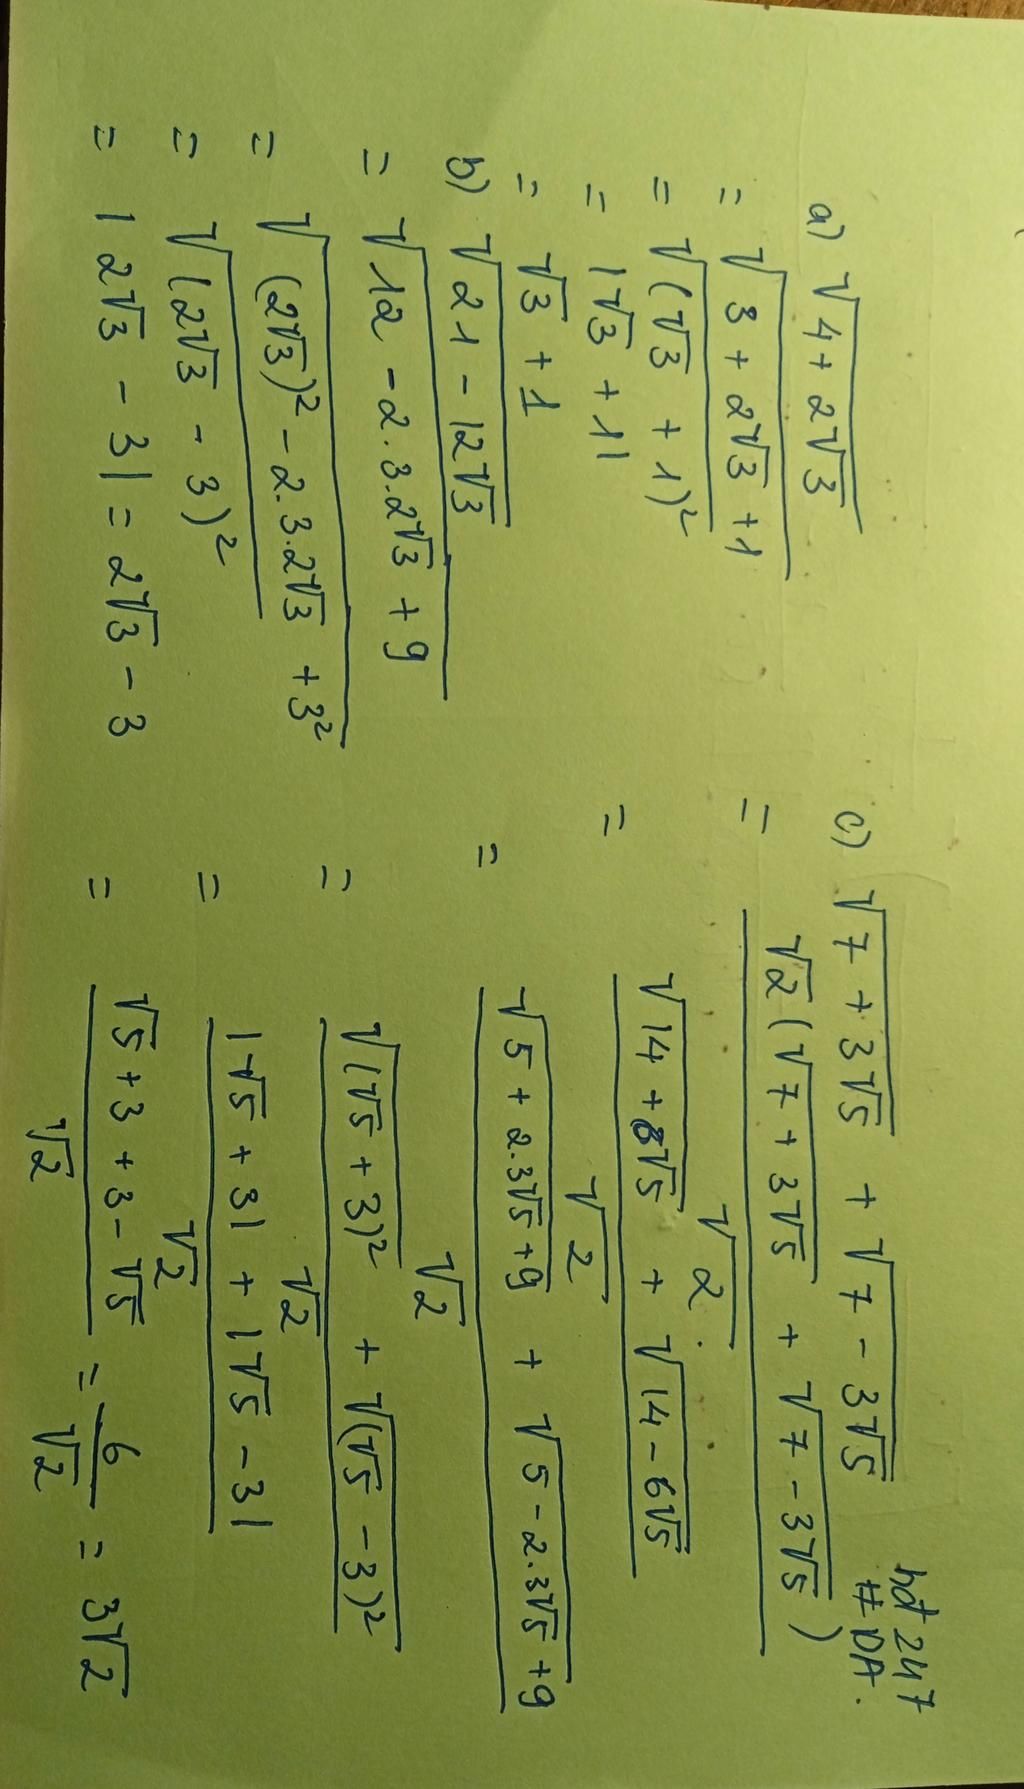 a) √(4 + 2√3)
= √(3 + 2√3 + 1)
= √((√3 + 1)²)
= |√3 + 1|
= √3 + 1
b) √(21 - 12√3)
= √(12 - 2.3.2√3 + 9)
= √((2√3)² - 2.3.2√3 + 3²)
= √((2√3 - 3)²)
= |2√3 - 3| = 2√3 - 3
hdt 247
# DA.
c) √(7 + 3√5) + √(7 - 3√5)
= √2(√(7 + 3√5) + √(7 - 3√5)) / √2.
= (√(14 + 6√5) + √(14 - 6√5)) / √2
= (√(5 + 2.3√5 + 9) + √(5 - 2.3√5 + 9)) / √2
= (√((√5 + 3)²) + √((√5 - 3)²)) / √2
= (|√5 + 3| + |√5 - 3|) / √2
= (√5 + 3 + 3 - √5) / √2 = 6 / √2 = 3√2